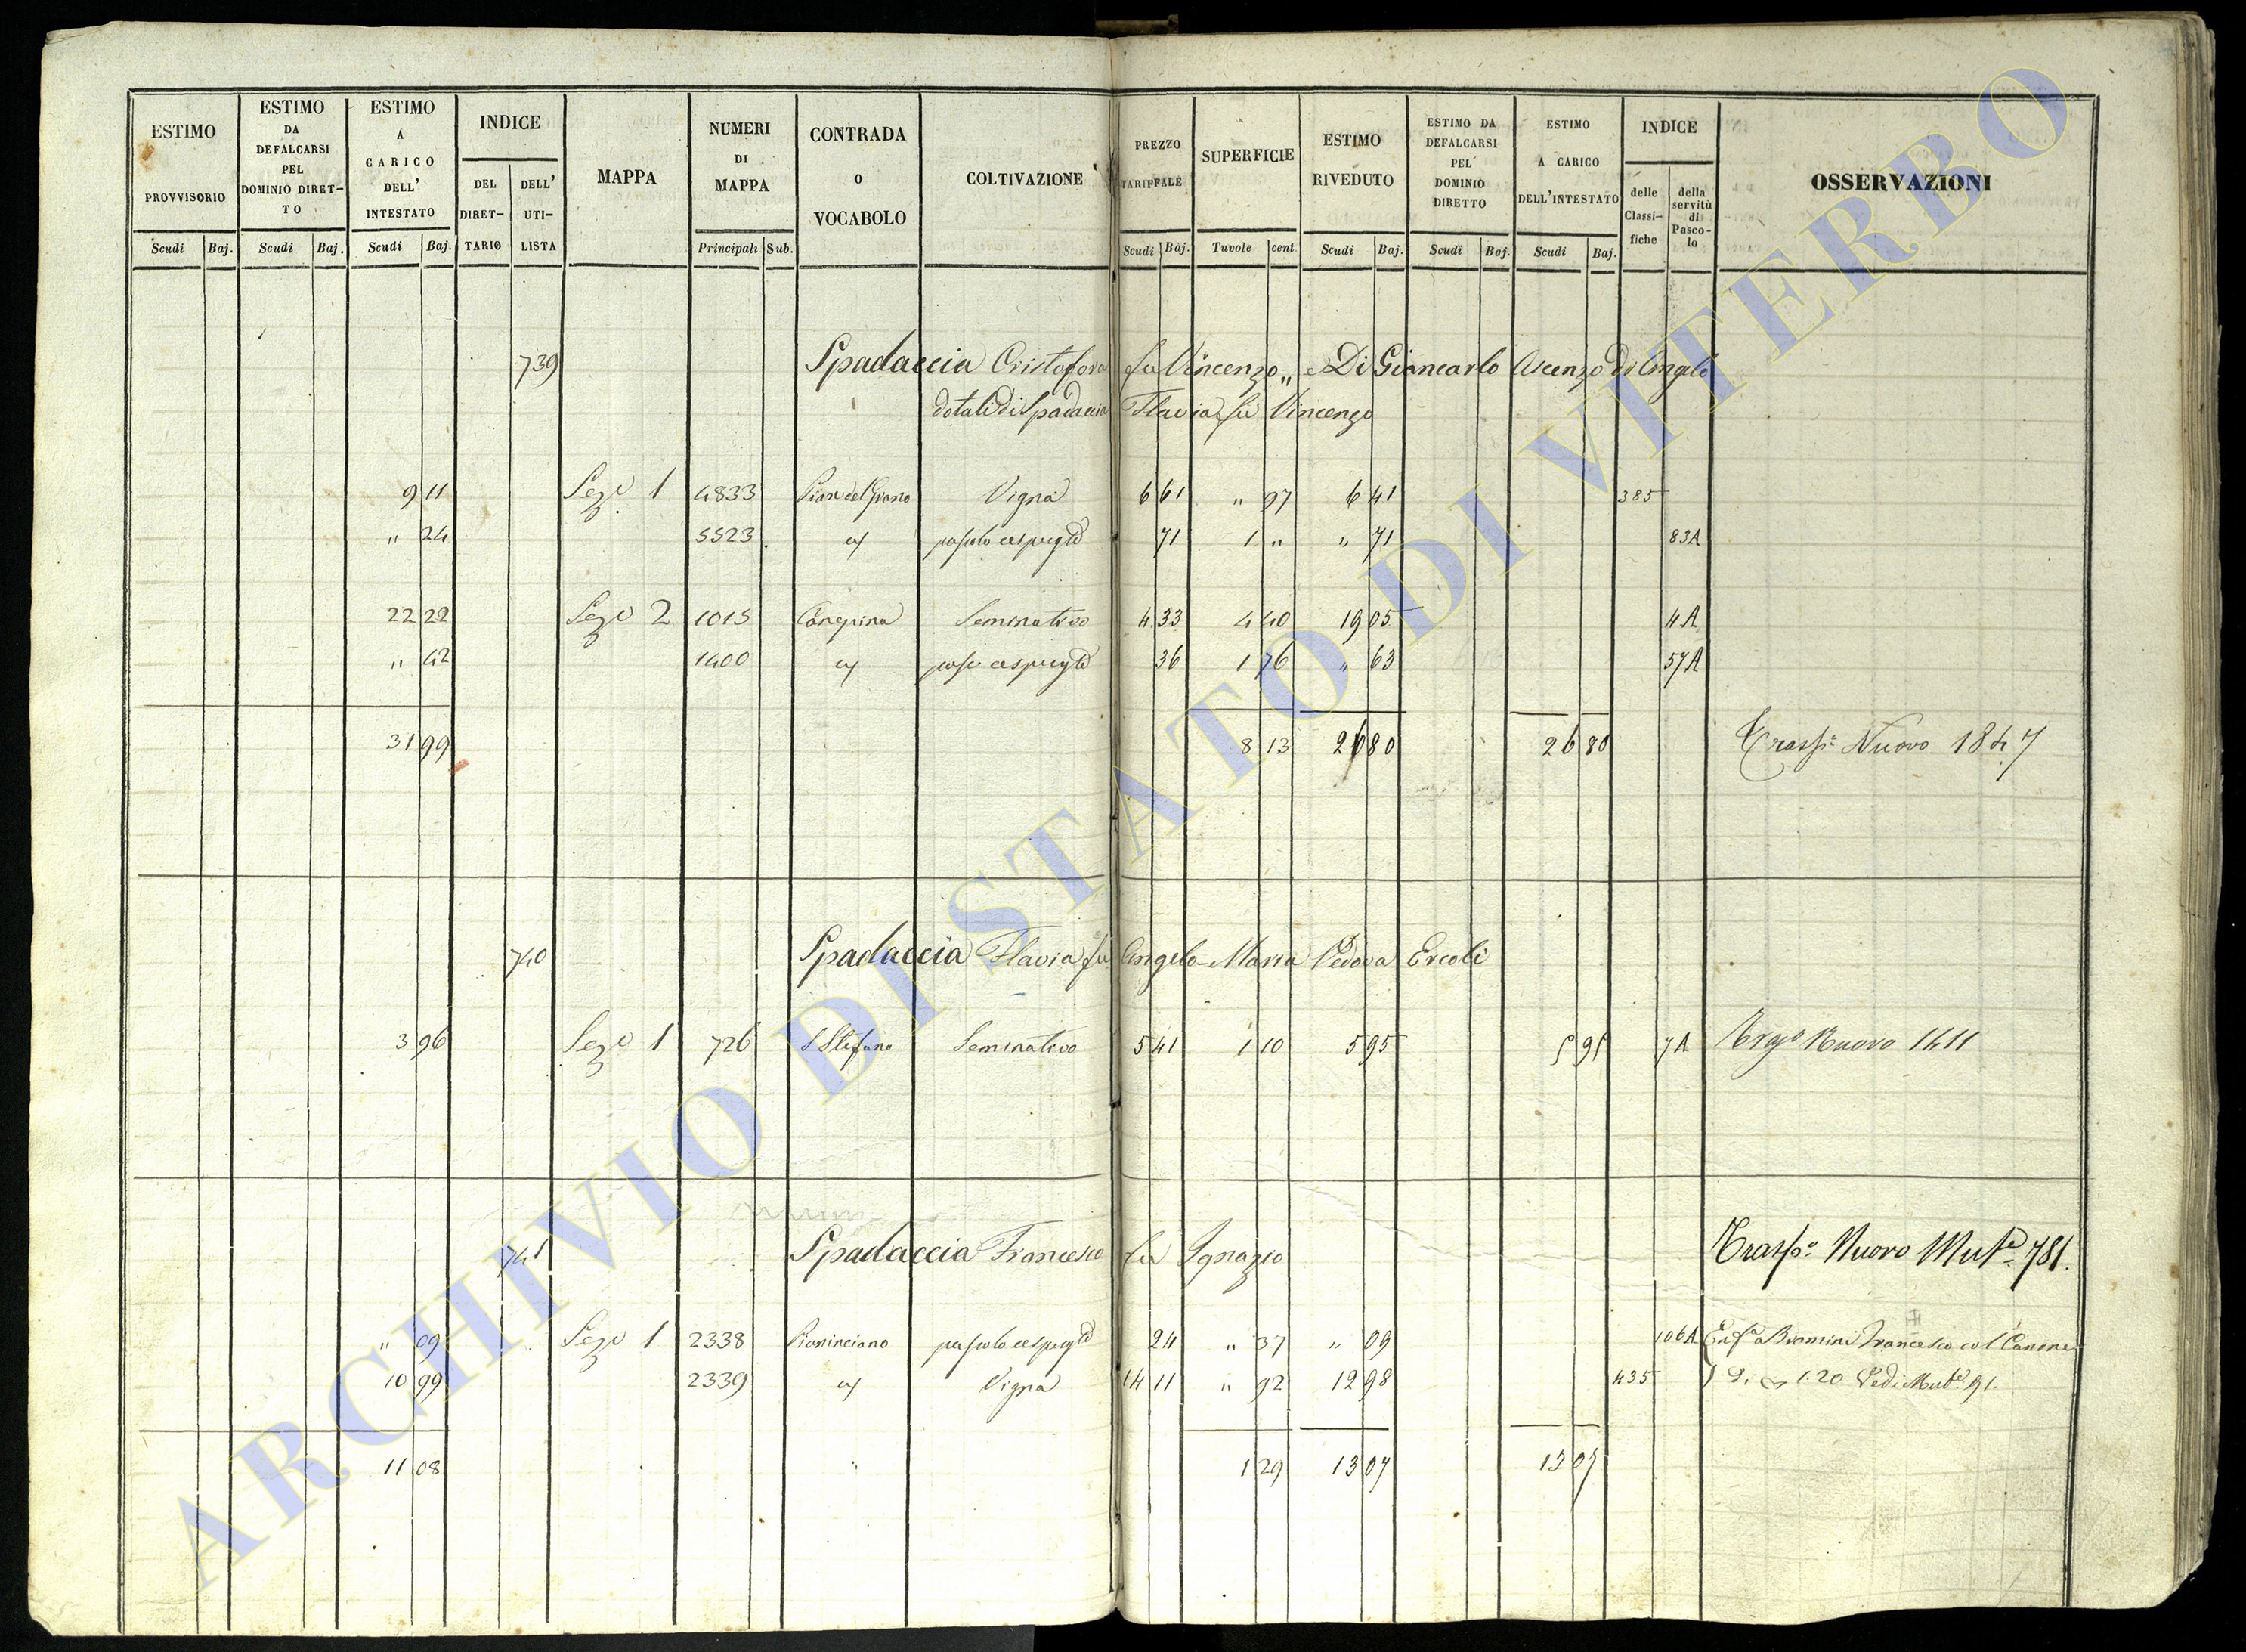 ESTIMO PROVVISORIO
ESTIMO DA DEFALCARSI PEL DOMINIO DIRET-TO
ESTIMO A CARICO DELL' INTESTATO
INDICE
DEL DIRET-TARIO
DELL' UTI-LISTA
MAPPA
NUMERI DI MAPPA
CONTRADA O VOCABOLO
COLTIVAZIONE
PREZZO TARIFFALE
SUPERFICIE
ESTIMO RIVEDUTO
ESTIMO DA DEFALCARSI PEL DOMINIO DIRETTO
ESTIMO A CARICO DELL'INTESTATO
INDICE
delle Classi-fiche
della servitù di Pasco-lo
OSSERVAZIONI
Scudi Baj. Scudi Baj. Scudi Baj. Principali Sub. Scudi Baj. Tavole cent. Scudi Baj. Scudi Baj. Scudi Baj.
739 Spadaccia Cristofora fu Vincenzo „ e Di Giancarlo Ascenzo di Angelo
dotali di Spadaccia Flavia fu Vincenzo
9 11 Seze 1 4833 Pian del Grano Vigna 6 61 „ 97 6 41 385
„ 24 5523 pascolo cespugto 71 1 „ „ 71 83A
22 22 Seze 2 1015 Seminativo 4 33 4 40 19 05 4A
„ 42 1400 pasco cespugto 36 1 76 „ 63 57A
31 99 8 13 26 80 26 80 Trasso Nuovo 1847
740 Spadaccia Flavia fu Angelo-Maria Vedova Ercoli
3 96 Seze 1 726 S Stefano Seminativo 5 41 1 10 5 95 5 95 7A Nuovo 1411
741 Spadaccia Francesco fu Ignazio Trasso Nuovo Muta 781.
„ 09 Seze 1 2338 pascolo cespugto 24 „ 37 „ 09 106A Enfa a Francesco col Canone
10 99 2339 Vigna 14 11 „ 92 12 98 435 di 1.20 Vedi Muta 91.
11 08 1 29 13 07 13 07
ARCHIVIO DI STATO DI VITERBO